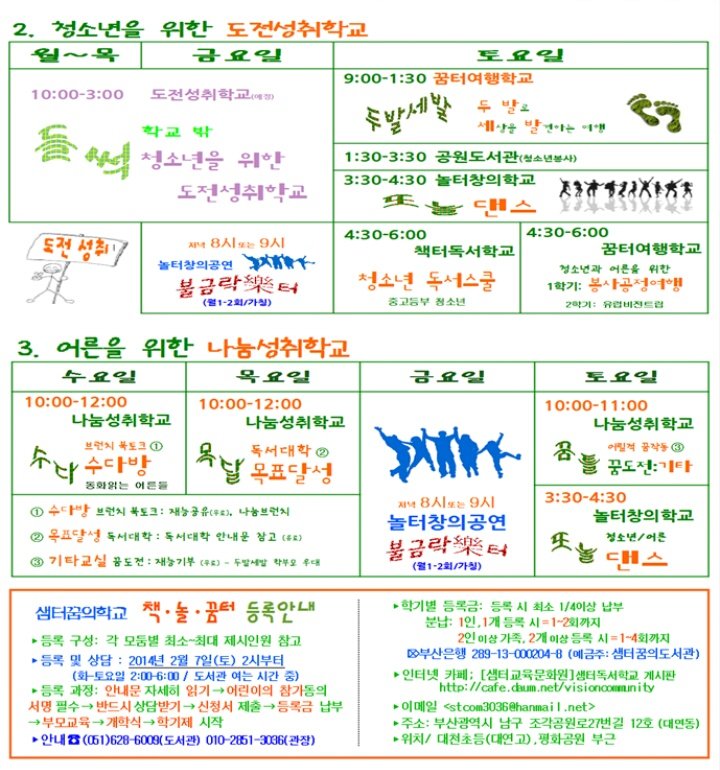 2. 청소년을 위한 도전성취학교
월~목 금요일 토요일
10:00-3:00 도전성취학교(예정)
들썩
학교 밖
청소년을 위한
도전성취학교
9:00-1:30 꿈터여행학교
두발세발
두 발로
세상을 발견하는 여행
1:30-3:30 공원도서관(청소년봉사)
3:30-4:30 놀터창의학교
또놀 댄스
도전 성취!
저녁 8시 또는 9시
놀터창의공연
불금락樂터
(월1-2회/가칭)
4:30-6:00
책터독서학교
청소년 독서스쿨
중고등부 청소년
4:30-6:00
꿈터여행학교
청소년과 어른을 위한
1학기: 봉사공정여행
2학기: 유럽비전트립
3. 어른을 위한 나눔성취학교
수요일 목요일 금요일 토요일
10:00-12:00
나눔성취학교
수다
브런치 북토크 ①
수다방
동화읽는 어른들
10:00-12:00
나눔성취학교
목달
독서대학 ②
목표달성
저녁 8시 또는 9시
놀터창의공연
불금락樂터
(월1-2회/가칭)
10:00-11:00
나눔성취학교
꿈틀
어필적 공작동 ③
꿈도전:기타
3:30-4:30
놀터창의학교
또놀
청소년/어른
댄스
① 수다방 브런치 북토크 : 재능공유(무료), 나눔브런치
② 목표달성 독서대학 : 독서대학 안내문 참고 (유료)
③ 기타교실 꿈도전 : 재능기부 (무료) - 두발세발 학부모 우대
샘터꿈의학교 책·놀·꿈터 등록안내
▸등록 구성: 각 모둠별 최소~최대 제시인원 참고
▸등록 및 상담 : 2014년 2월 7일(토) 2시부터
(화~토요일 2:00-6:00 / 도서관 여는 시간 중)
▸등록 과정: 안내문 자세히 읽기→어린이의 참가동의
서명 필수→반드시 상담받기→신청서 제출→등록금 납부
→부모교육→개학식→학기제 시작
▸안내☎(051)628-6009(도서관) 010-2851-3036(관장)
▸학기별 등록금: 등록 시 최소 1/4이상 납부
분납: 1인,1개 등록 시=1~2회까지
2인 이상 가족, 2개 이상 등록 시=1~4회까지
⌦부산은행 289-13-000204-8 (예금주: 샘터꿈의도서관)
▸인터넷 카페; [샘터교육문화원]샘터독서학교 게시판
http://cafe.daum.net/visioncommunity
▸이메일 <stcom3036@hanmail.net>
▸주소: 부산광역시 남구 조각공원로27번길 12호 (대연동)
▸위치/ 대천초등(대연고),평화공원 부근